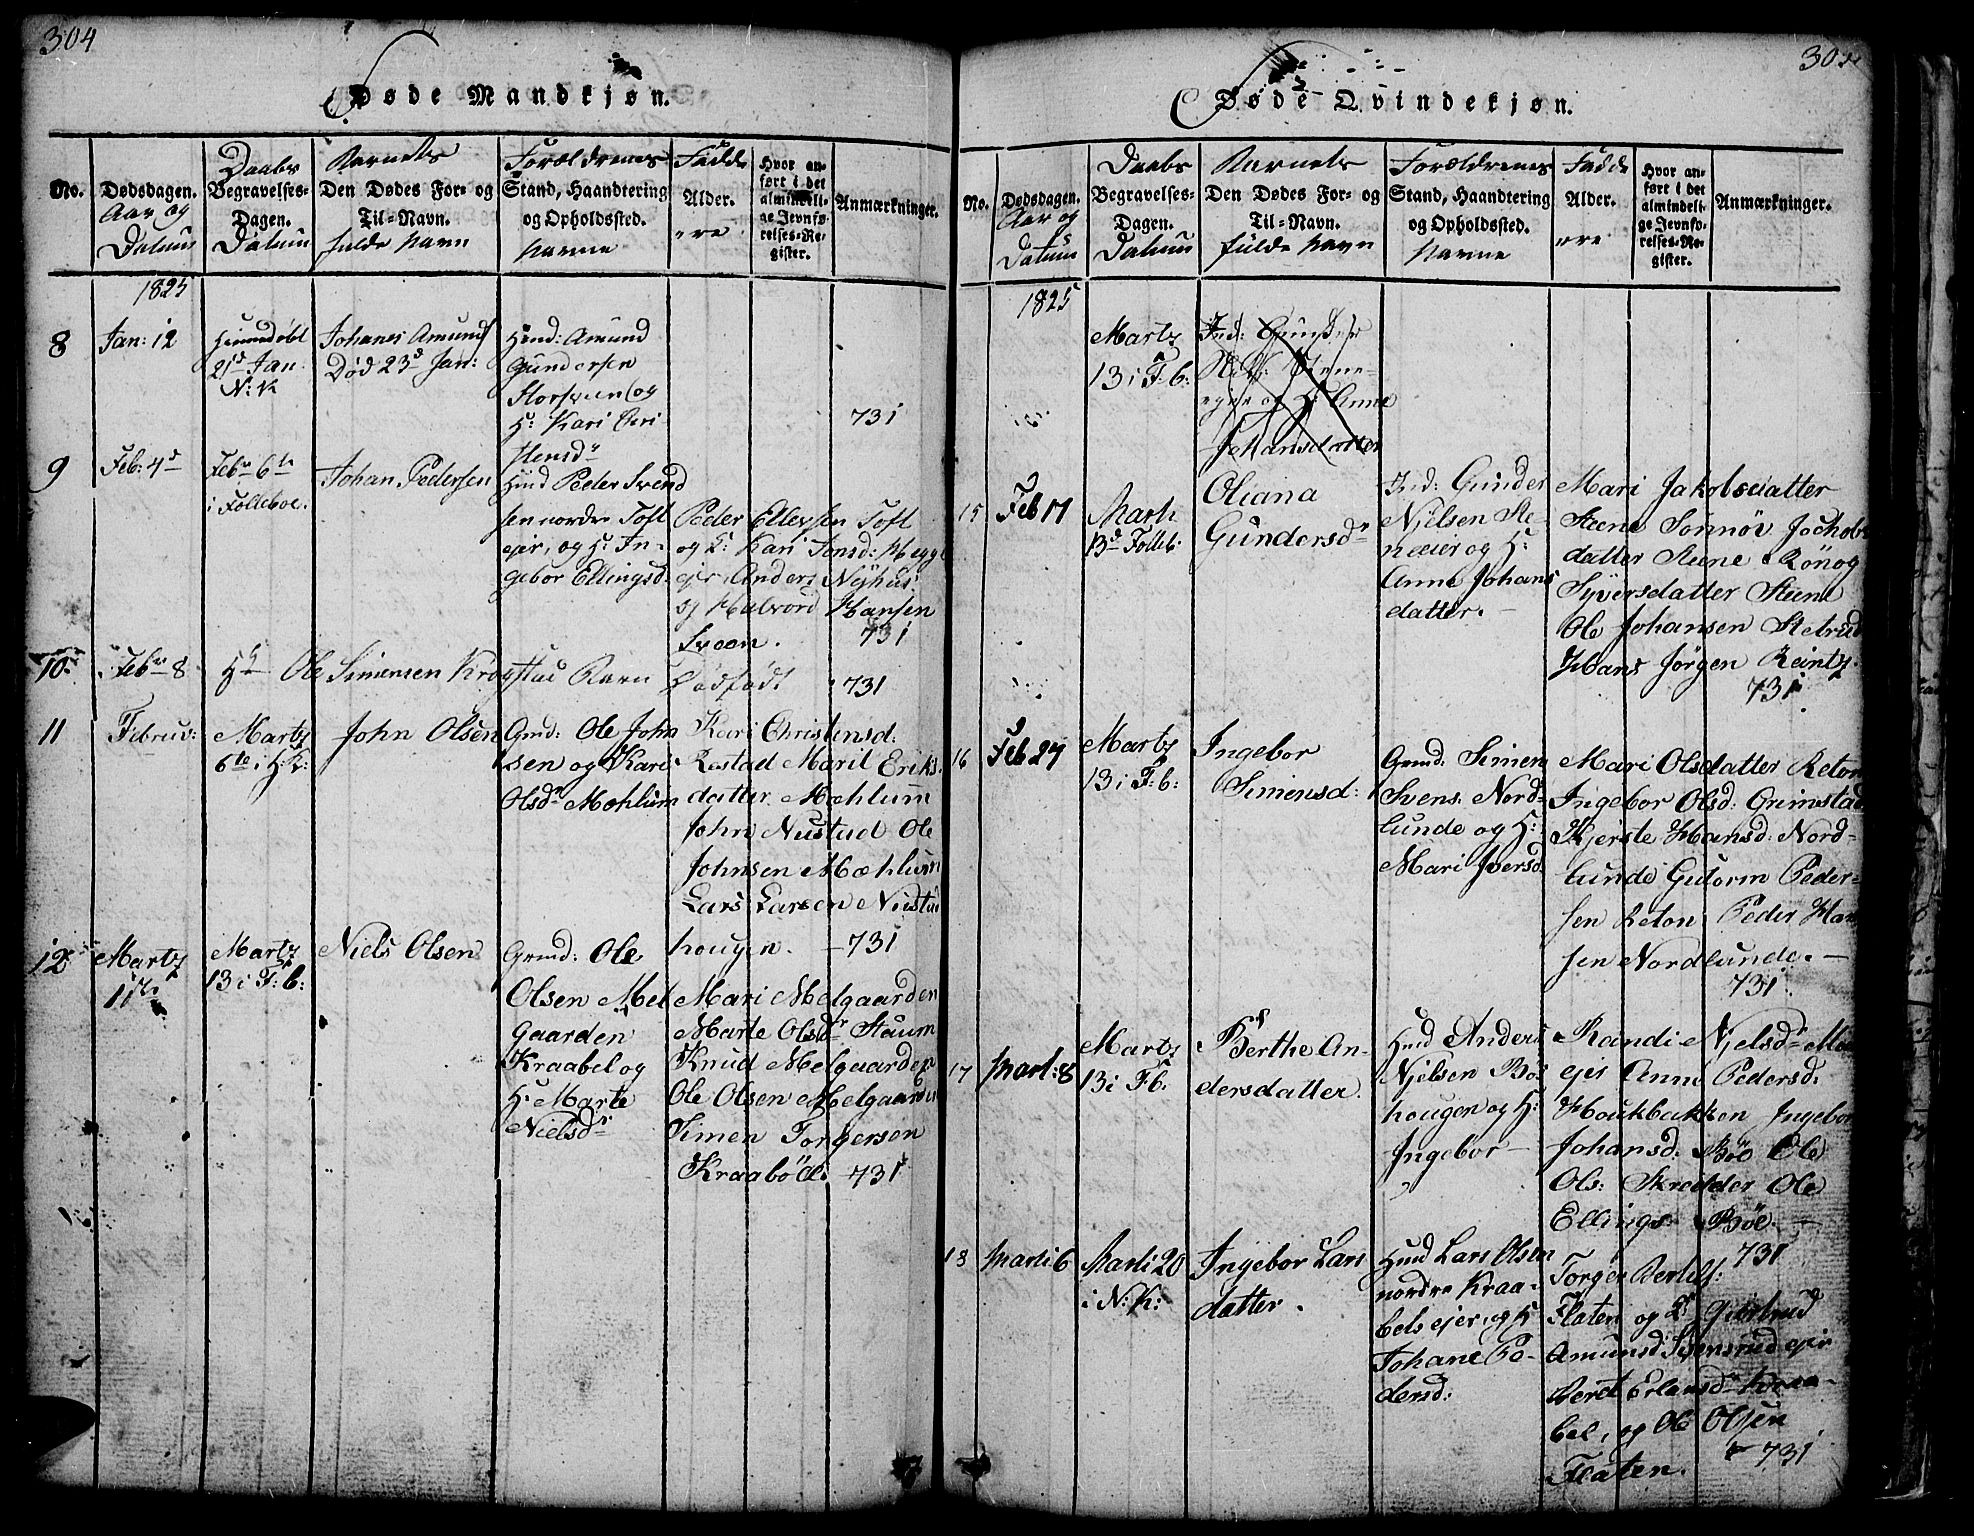 304
Døde Mandkjøn.
No.
Dødsdagen.
Aar og
Datum
Daabs
Begravelses-
Dagen.
Datum
Barnets
Den Dødes For- og
Til-Navn.
fulde Navn
Forældrenes
Stand, Haandtering
og Opholdssted.
Navne
Fadde
Alder.
ere
Hvor an-
ført i det
almindeli-
ge Jevnfø-
relses-Re-
gister.
Anmærkninger.
1825
8
Jan: 12
Hiemmedøbt
21d Jan.
N: K
Johanes Amunds
Død 23d Jan:
Huusd: Amund
Gundersen
Storsveen og
H: Kari Chri
stensdr
731
9
Feb: 4d
Febr 6te
i Følleboe.
Johan Pedersen
Huusd Peder Svend
sen nordre Toft
ejer, og H: In-
gebor Ellingsd.
Peder Ellevsen Toft
og K: Kari Jonsd:
ejer, Anders Nyhus
og Halvord Hansen
Sveen.
731
10
Febr 8
Ole Simensen Krogstad Barn
Dødfødt
731
11
Februv:
Martz
6te i H: K:
John Olsen
Gmd: Ole John
sen og Kari
Olsdr Mæhlum
Kari Christensd:
Rostad Marit Eriks
datter Mæhlum
John Nustad Ole
Johnsen Mæhlum
Lars Larsen Nustad
hougen. 731
12
Martz
11te
Martz
13 i F: b:
Niels Olsen
Gmd: Ole
Olsen Mel
gaarden
Kraabel og
H: Marte
Nielsdr
Mari Melgaarden
Marte Olsdr Staum
Knud Melgaarden
Ole Olsen Melgaarden
Simen Torgersen
Kraaböl. 731
305
Døde Qvindekjøn.
No.
Dødsdagen.
Aar og
Datum
Daabs
Begravelses-
Dagen.
Datum
Barnets
Den Dødes For- og
Til-Navn.
fulde Navn
Forældrenes
Stand, Haandtering
og Opholdssted.
Navne
Fadde
Alder.
ere
Hvor an-
ført i det
almindeli-
ge Jevnfø-
relses-Re-
gister.
Anmærkninger.
1825
Martz
13 i F: b:
Ind: Gunder
Steene-
ejer og H: Anne
Johansdatter
15
Feb 17
Marti
13d Folleb:
Oliana
Gundersdr
Ind: Gunder
Nielsen Ste-
neeier og H:
Anne Johans
datter.
Mari Jakobsdatter
Steene Sønnøv Jochobs
datter Steene Rönog
Syversdatter Steene
Ole Johansen Stetrud
Hans Jørgen Reintz.
731
16
Feb 27
Martz
13 i F: b:
Ingebor
Simensd:
Gmd: Simen
Svens. Nord-
lunde og H:
Mari Iversd
Mari Olsdatter Reton
Ingebor Olsd: Grimstad
Kjerste Hansd: Nord-
lunde Gutorm Peder-
sen Reton Peder Han
sen Nordlunde. -
731
17
Mart: 8
Martz
13 i F b:
Berthe An-
dersdatter.
Hmd Anders
Njelsen Böe
hougen og H:
Ingebor -
Randi Njelsdr
ejer Anne Pedersd:
Houkbakken Ingebor
Johansd: Böe Ole
Ols: Skredder Ole
Ellings: Böe. -
731
18
Marti 6
Marti 20
i N: K:
Ingebor Lars
datter.
Huusd Lars Olsen
nordre Kraa-
bels ejer, og H
Johane Pe-
dersd:
Torger Bertels:
Flaten og K: Giertrud
Amundsd ejer
Beret Erlansdr Kraa-
bel, og Ole Olsen
Flaten. 731